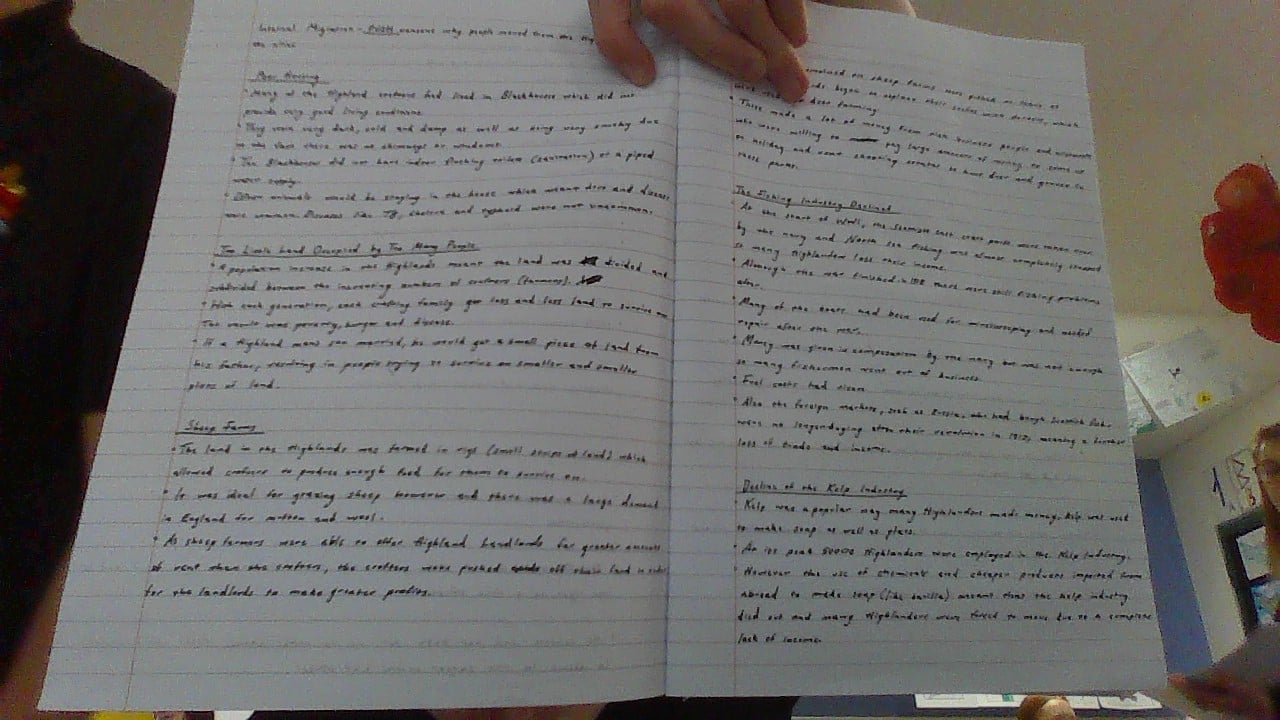 Internal Migration - PUSH reasons why people moved from the
the cities
Poor Housing
• Many of the Highland crofters had lived in Blackhouses which did not
provide very good living conditions.
• They were very dark, cold and damp as well as being very smokey due
to the fact there was no chimneys or windows.
• The Blackhouses did not have indoor flushing toilets (sanitation) or a piped
water supply.
• Often animals would be staying in the house which meant dirt and disease
were common. Diseases like TB, cholera and typhoid were not uncommon.
Too Little Land Occupied by Too Many People
• A population increase in the Highlands meant the land was divided and
subdivided between the increasing numbers of crofters (farmers).
• With each generation, each crofting family got less and less land to survive on.
The results were poverty, hunger and disease.
• If a Highland mans son married, he would get a small piece of land from
his father, resulting in people trying to survive on smaller and smaller
plots of land.
Sheep Farms
• The land in the Highlands was farmed in rigs (small strips of land) which
allowed crofters to produce enough food for them to survive on.
• It was ideal for grazing sheep however and there was a large demand
in England for mutton and wool.
• As sheep farmers were able to offer Highland landlords far greater amounts
of rent than the crofters, the crofters were pushed off their land in order
for the landlords to make greater profits.
employed on sheep farms were pushed
began to replace their
to deer farming
• These made a lot of money from rich business people and aristocrats
who were willing to pay large amounts of money to come up
on holiday and rent shooting estates to hunt deer and grouse in
these parts.
The Fishing Industry Declined
• At the start of WW1, the Scottish east coast ports were taken over
by the navy and North sea fishing was almost completely stopped
so many Highlanders lost their income.
• Although the war finished in 1918 there were still fishing problems
after.
• Many of the boats had been used for minesweeping and needed
repair after the war.
• Money was given in compensation by the navy but was not enough
so many fishermen went out of business.
• Fuel costs had risen
• Also the foreign markets, such as Russia, who had bough Scottish fish
were no longer buying after their revolution in 1917, meaning a further
loss of trade and income.
Decline of the Kelp Industry
• Kelp was a popular way many Highlanders made money. Kelp was used
to make soap as well as glass.
• At its peak 50000 Highlanders were employed in the Kelp Industry.
• However the use of chemicals and cheaper products imported from
abroad to make soap (like barilla) meant that the kelp industry
died out and many Highlanders were forced to move due to a complete
lack of income.